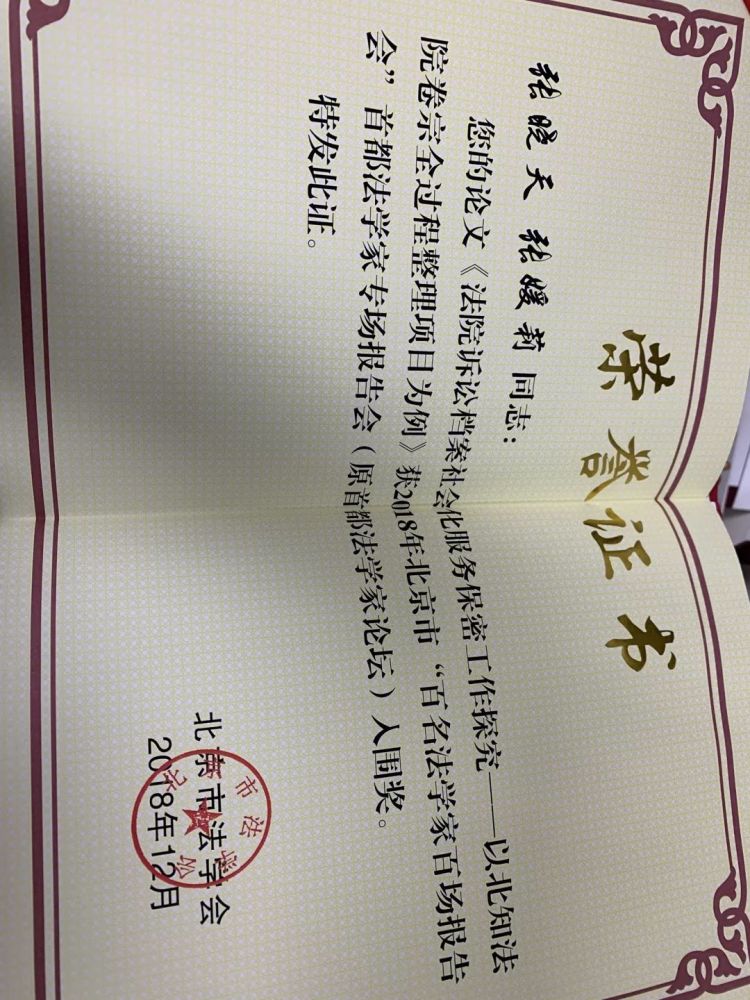 荣誉证书
张晓天 张媛莉 同志：
您的论文《法院诉讼档案社会化服务保密工作探究——以北知法
院卷宗全过程整理项目为例》获2018年北京市“百名法学家百场报告
会”首都法学家专场报告会（原首都法学家论坛）入围奖。
特发此证。
北京市法学会
2018年12月